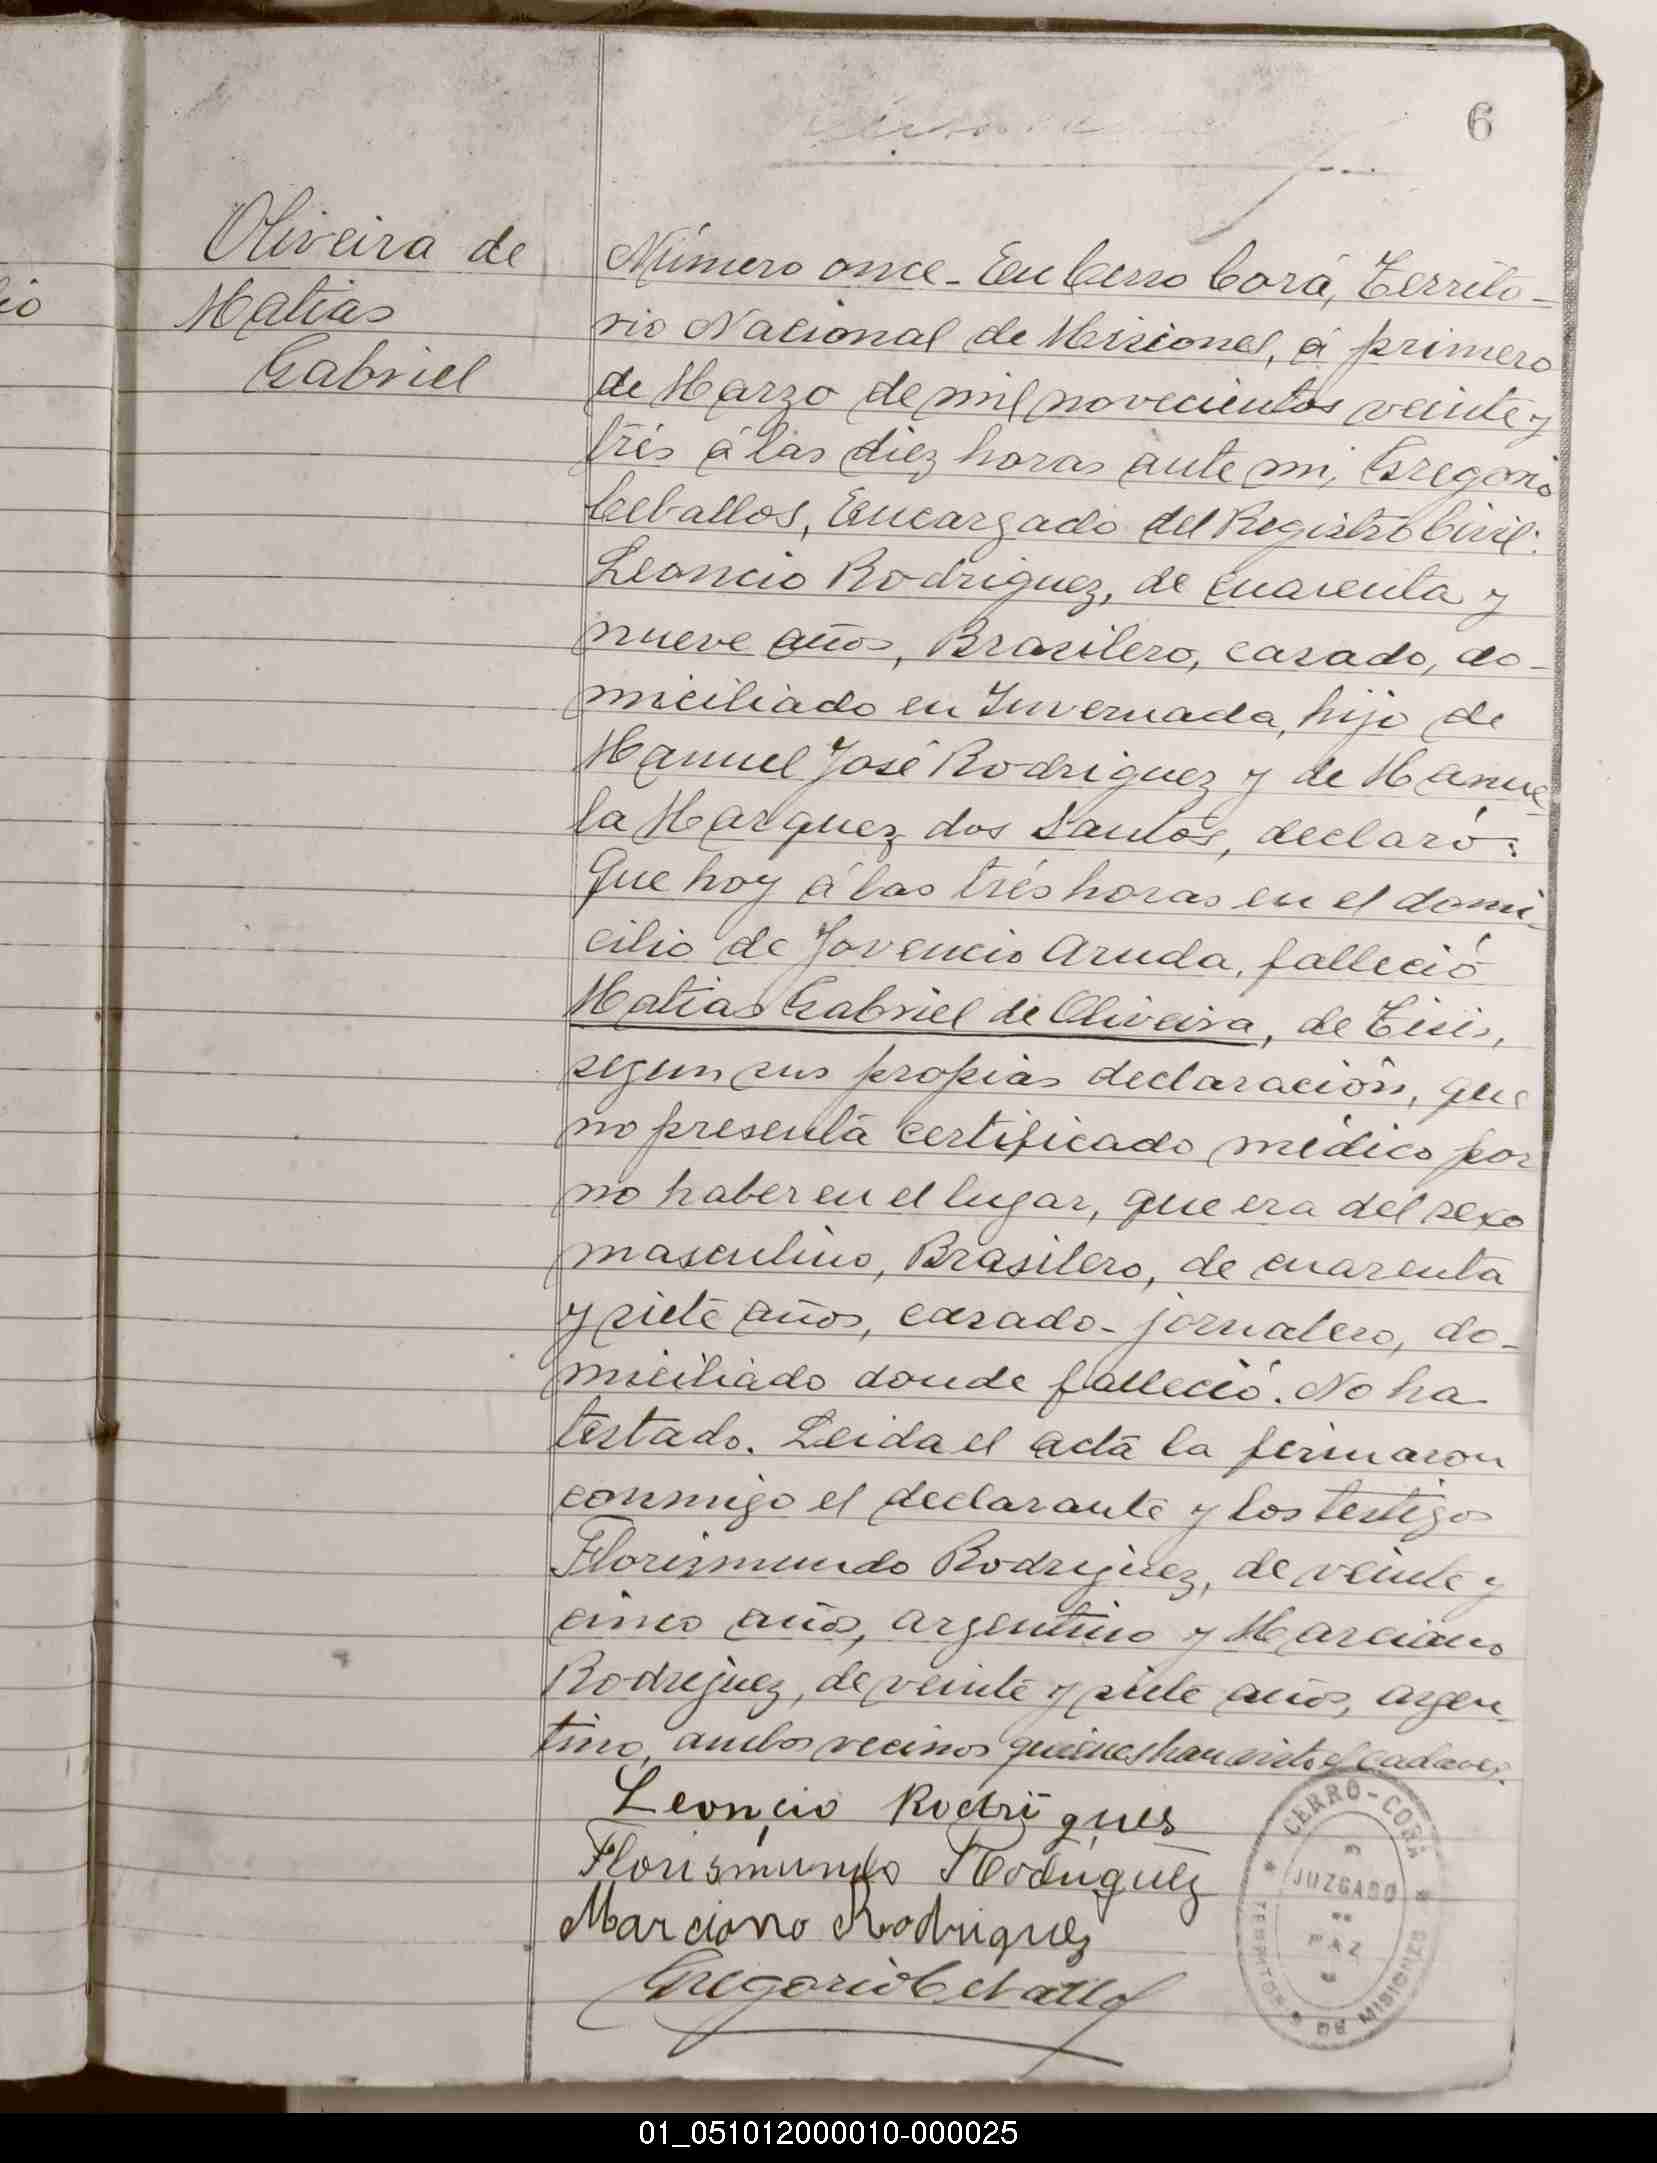 6
Oliveira de
Matias
Gabriel
Número once - En Cerro Corá, Territo-
rio Nacional de Misiones, á primero
de Marzo de mil novecientos veinte y
trés á las diez horas ante mi, Gregorio
Ceballos, Encargado del Registro Civil:
Leoncio Rodriguez, de cuarenta y
nueve años, Brasilero, casado, do-
miciliado en Invernada, hijo de
Manuel José Rodriguez y de Manue-
la Marquez dos Santos, declaró:
Que hoy á las trés horas en el domi-
cilio de Jovencio Aruda, falleció
Matias Gabriel de Oliveira, de Tisis,
segun sus propias declaración, que
no presenta certificado médico por
no haber en el lugar, que era del sexo
masculino, Brasilero, de cuarenta
y siete años, casado - jornalero, do-
miciliado donde falleció. No ha
testado. Leida el acta la firmaron
conmigo el declarante y los testigos
Florismundo Rodriguez, de veinte y
cinco años, argentino y Marciano
Rodriguez, de veinte y siete años, argen-
tino, ambos vecinos quienes han visto el cadaver.
Leoncio Rodrigues
Florismundo Rodriguez
Marciano Rodriguez
Gregorio Ceballos
CERRO-CORÁ
JUZGADO
DE
PAZ
TERRITORIO DE MISIONES
01_051012000010-000025